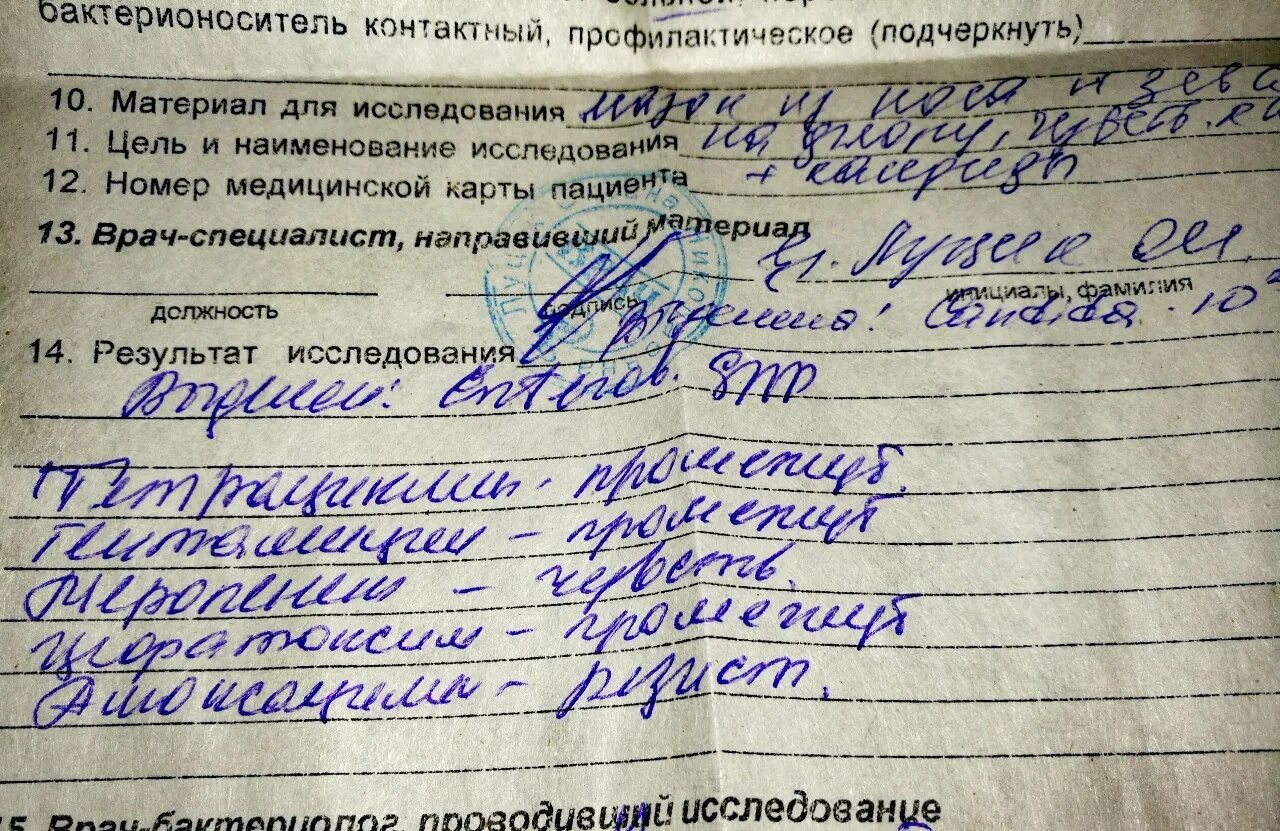 бактерионоситель контактный, профилактическое (подчеркнуть)
10. Материал для исследования мазок из носа и зева
11. Цель и наименование исследования на флору, чувств. к а
12. Номер медицинской карты пациента + кандиды
13. Врач-специалист, направивший материал
Луцик ОИ.
должность подпись инициалы, фамилия
Candida. 10
14. Результат исследования
Выделен: Enterob. Spp
Тетрациклин - промежут.
Гентамицин - промежут
Меропенем - чувств.
Цефатоксим - промежут
Амоксацилин - резист.
15. Врач-бактериолог, проводивший исследование